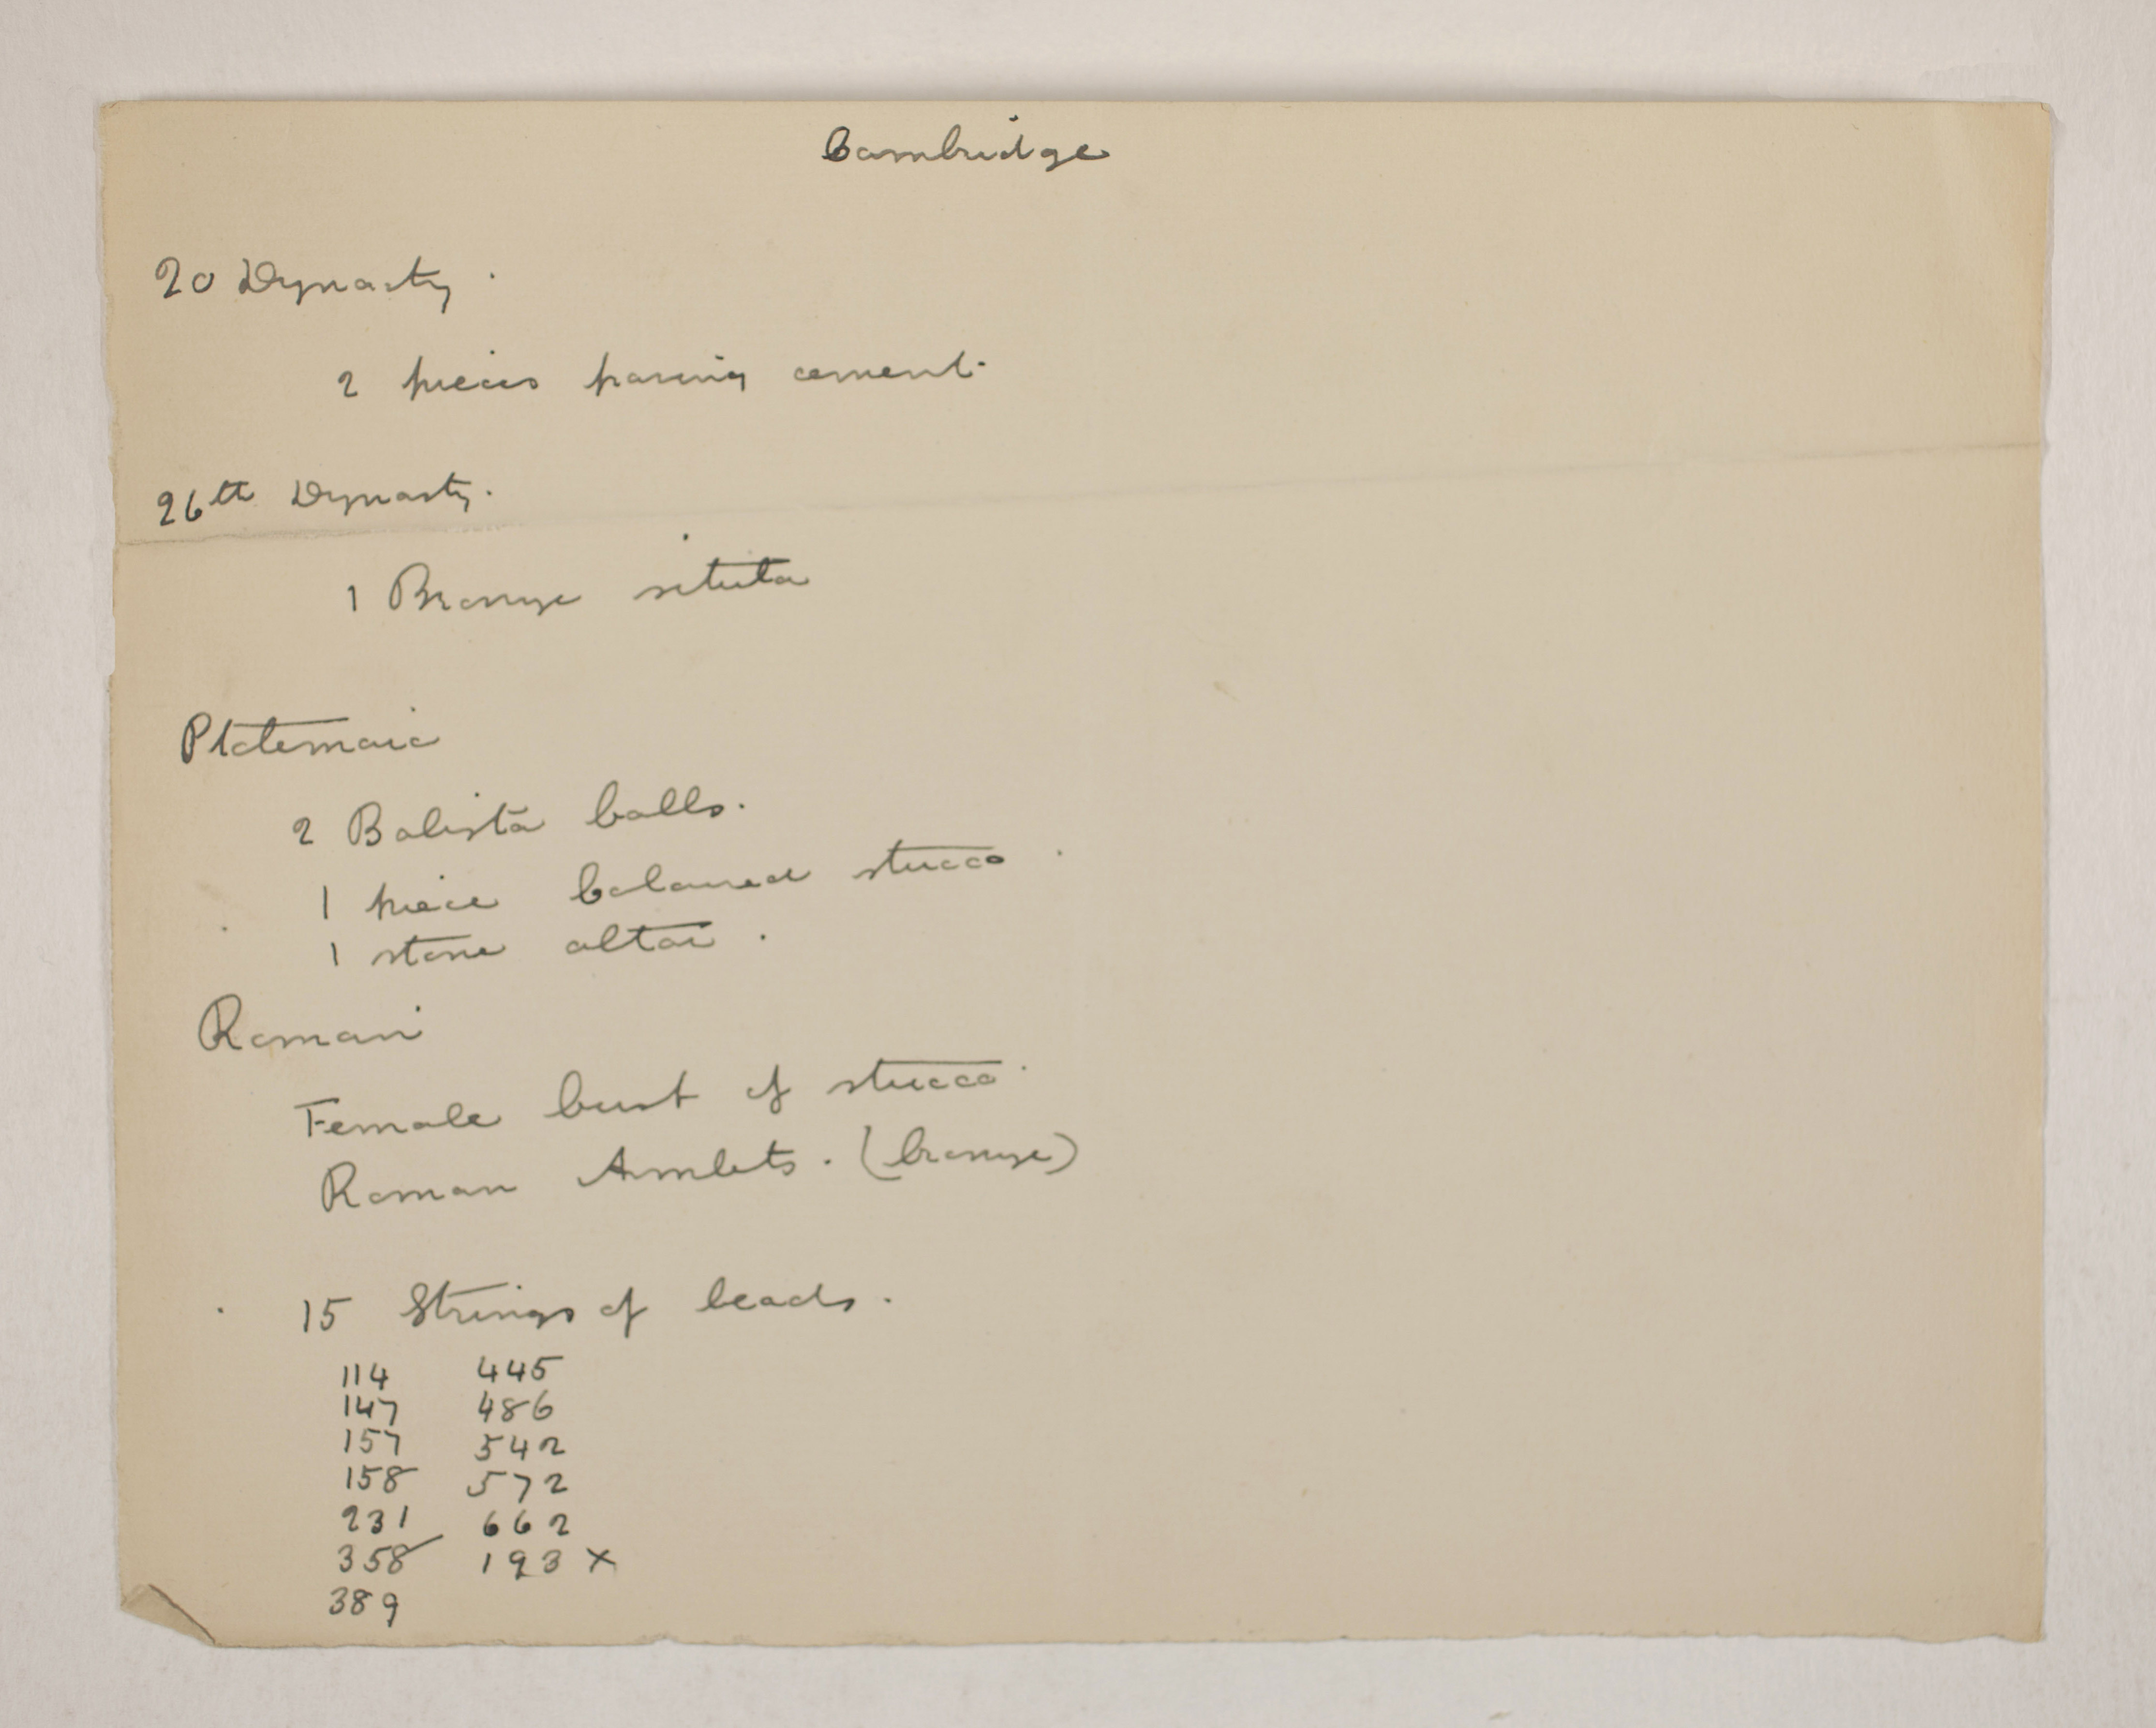 Cambridge
20 Dynasty.
2 pieces paving cement.
26th Dynasty.
1 Bronze situla
Ptolemaic
2 Balista balls.
1 piece coloured stucco.
1 stone altar.
Roman
Female bust of stucco.
Roman Armlets. (bronze)
15 Strings of beads.
114 445
147 486
157 542
158 572
231 662
358 193 x
389